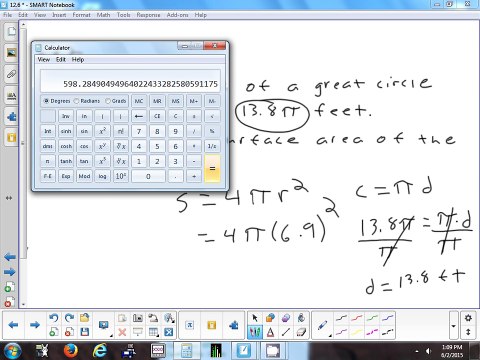 12.6 * - SMART Notebook
File Edit View Insert Format Tools Math Response Add-ons Draw Help
Calculator
View Edit Help
598.28490494964022433282580591175
Degrees Radians Grads MC MR MS M+ M-
Inv ln ( ) ← CE C ± √
Int sinh sin x² n! 7 8 9 / %
dms cosh cos 4 5 6 * 1/x
π tanh tan x³ ∛x 1 2 3 - =
F-E Exp Mod log 10ˣ 0 . +
of a great circle
13.8π feet.
surface area of the
S = 4πr²
= 4π(6.9)²
c = πd
13.8π = π·d
π π
d = 13.8 ft
1:09 PM
6/2/2015